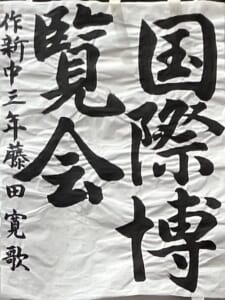 国際博
覧会
作新中三年藤田寛歌